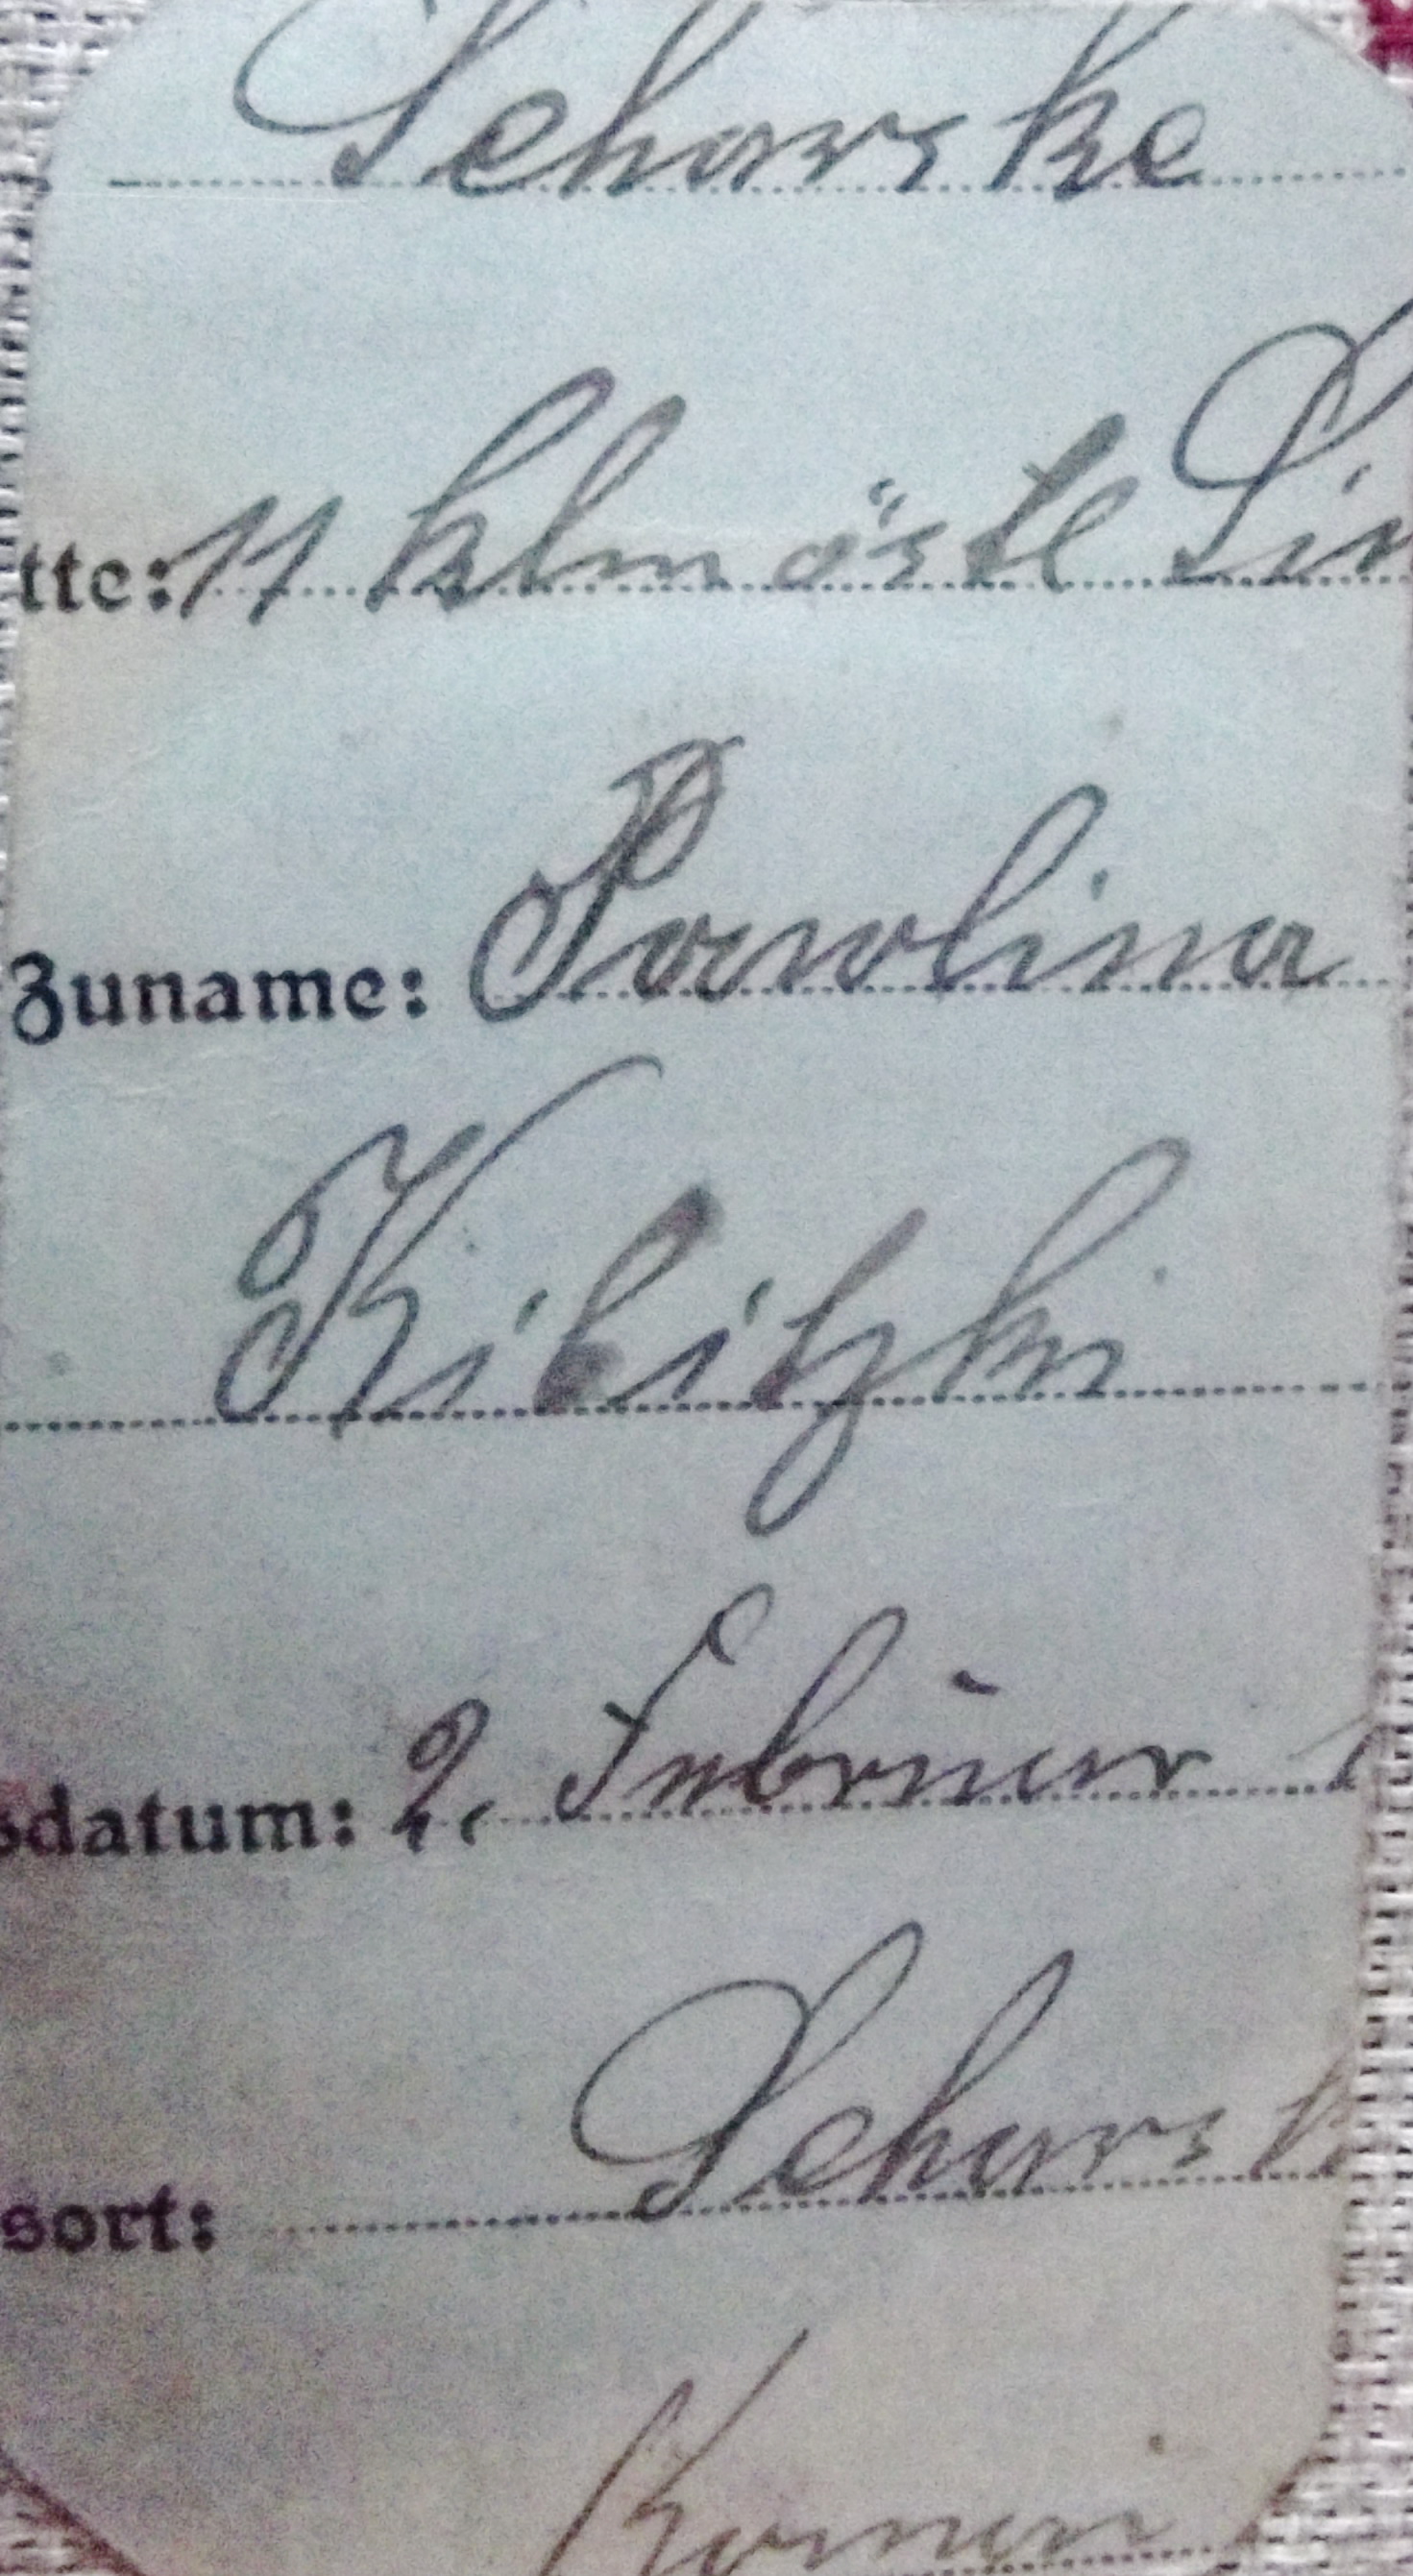 Scharske
tte: 11 klm östl Lin
Zuname: Pawlina
Kibitzki
sdatum: 2. Februar 1
sort: Scharsk